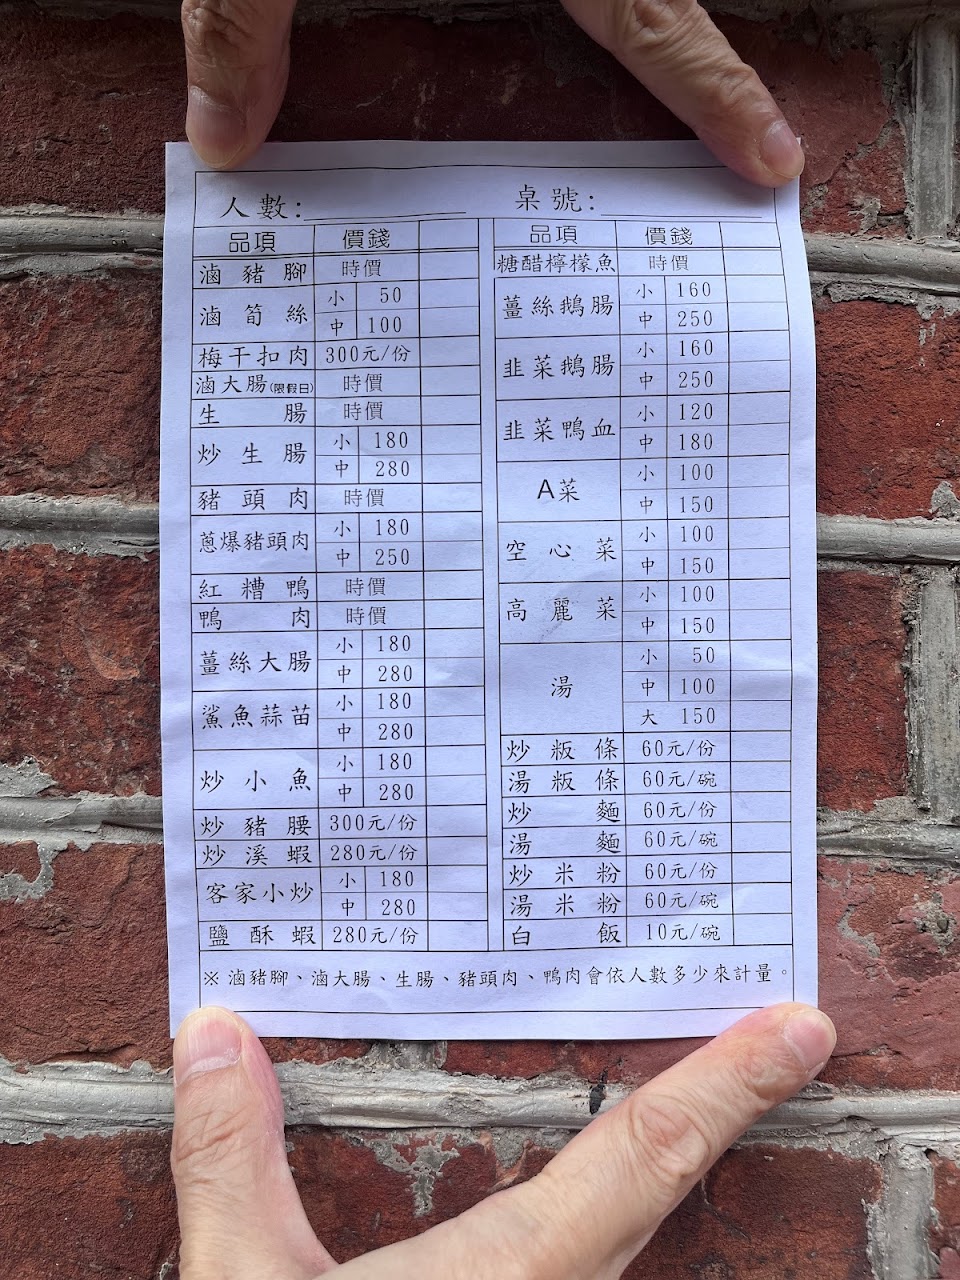 人數:
桌號:
品項 價錢
滷豬腳 時價
滷筍絲 小 50
中 100
梅干扣肉 300元/份
滷大腸(限假日) 時價
生腸 時價
炒生腸 小 180
中 280
豬頭肉 時價
蔥爆豬頭肉 小 180
中 250
紅糟鴨 時價
鴨肉 時價
薑絲大腸 小 180
中 280
鯊魚蒜苗 小 180
中 280
炒小魚 小 180
中 280
炒豬腰 300元/份
炒溪蝦 280元/份
客家小炒 小 180
中 280
鹽酥蝦 280元/份
品項 價錢
糖醋檸檬魚 時價
薑絲鵝腸 小 160
中 250
韭菜鵝腸 小 160
中 250
韭菜鴨血 小 120
中 180
A菜 小 100
中 150
空心菜 小 100
中 150
高麗菜 小 100
中 150
湯 小 50
中 100
大 150
炒粄條 60元/份
湯粄條 60元/碗
炒麵 60元/份
湯麵 60元/碗
炒米粉 60元/份
湯米粉 60元/碗
白飯 10元/碗
※滷豬腳、滷大腸、生腸、豬頭肉、鴨肉會依人數多少來計量。